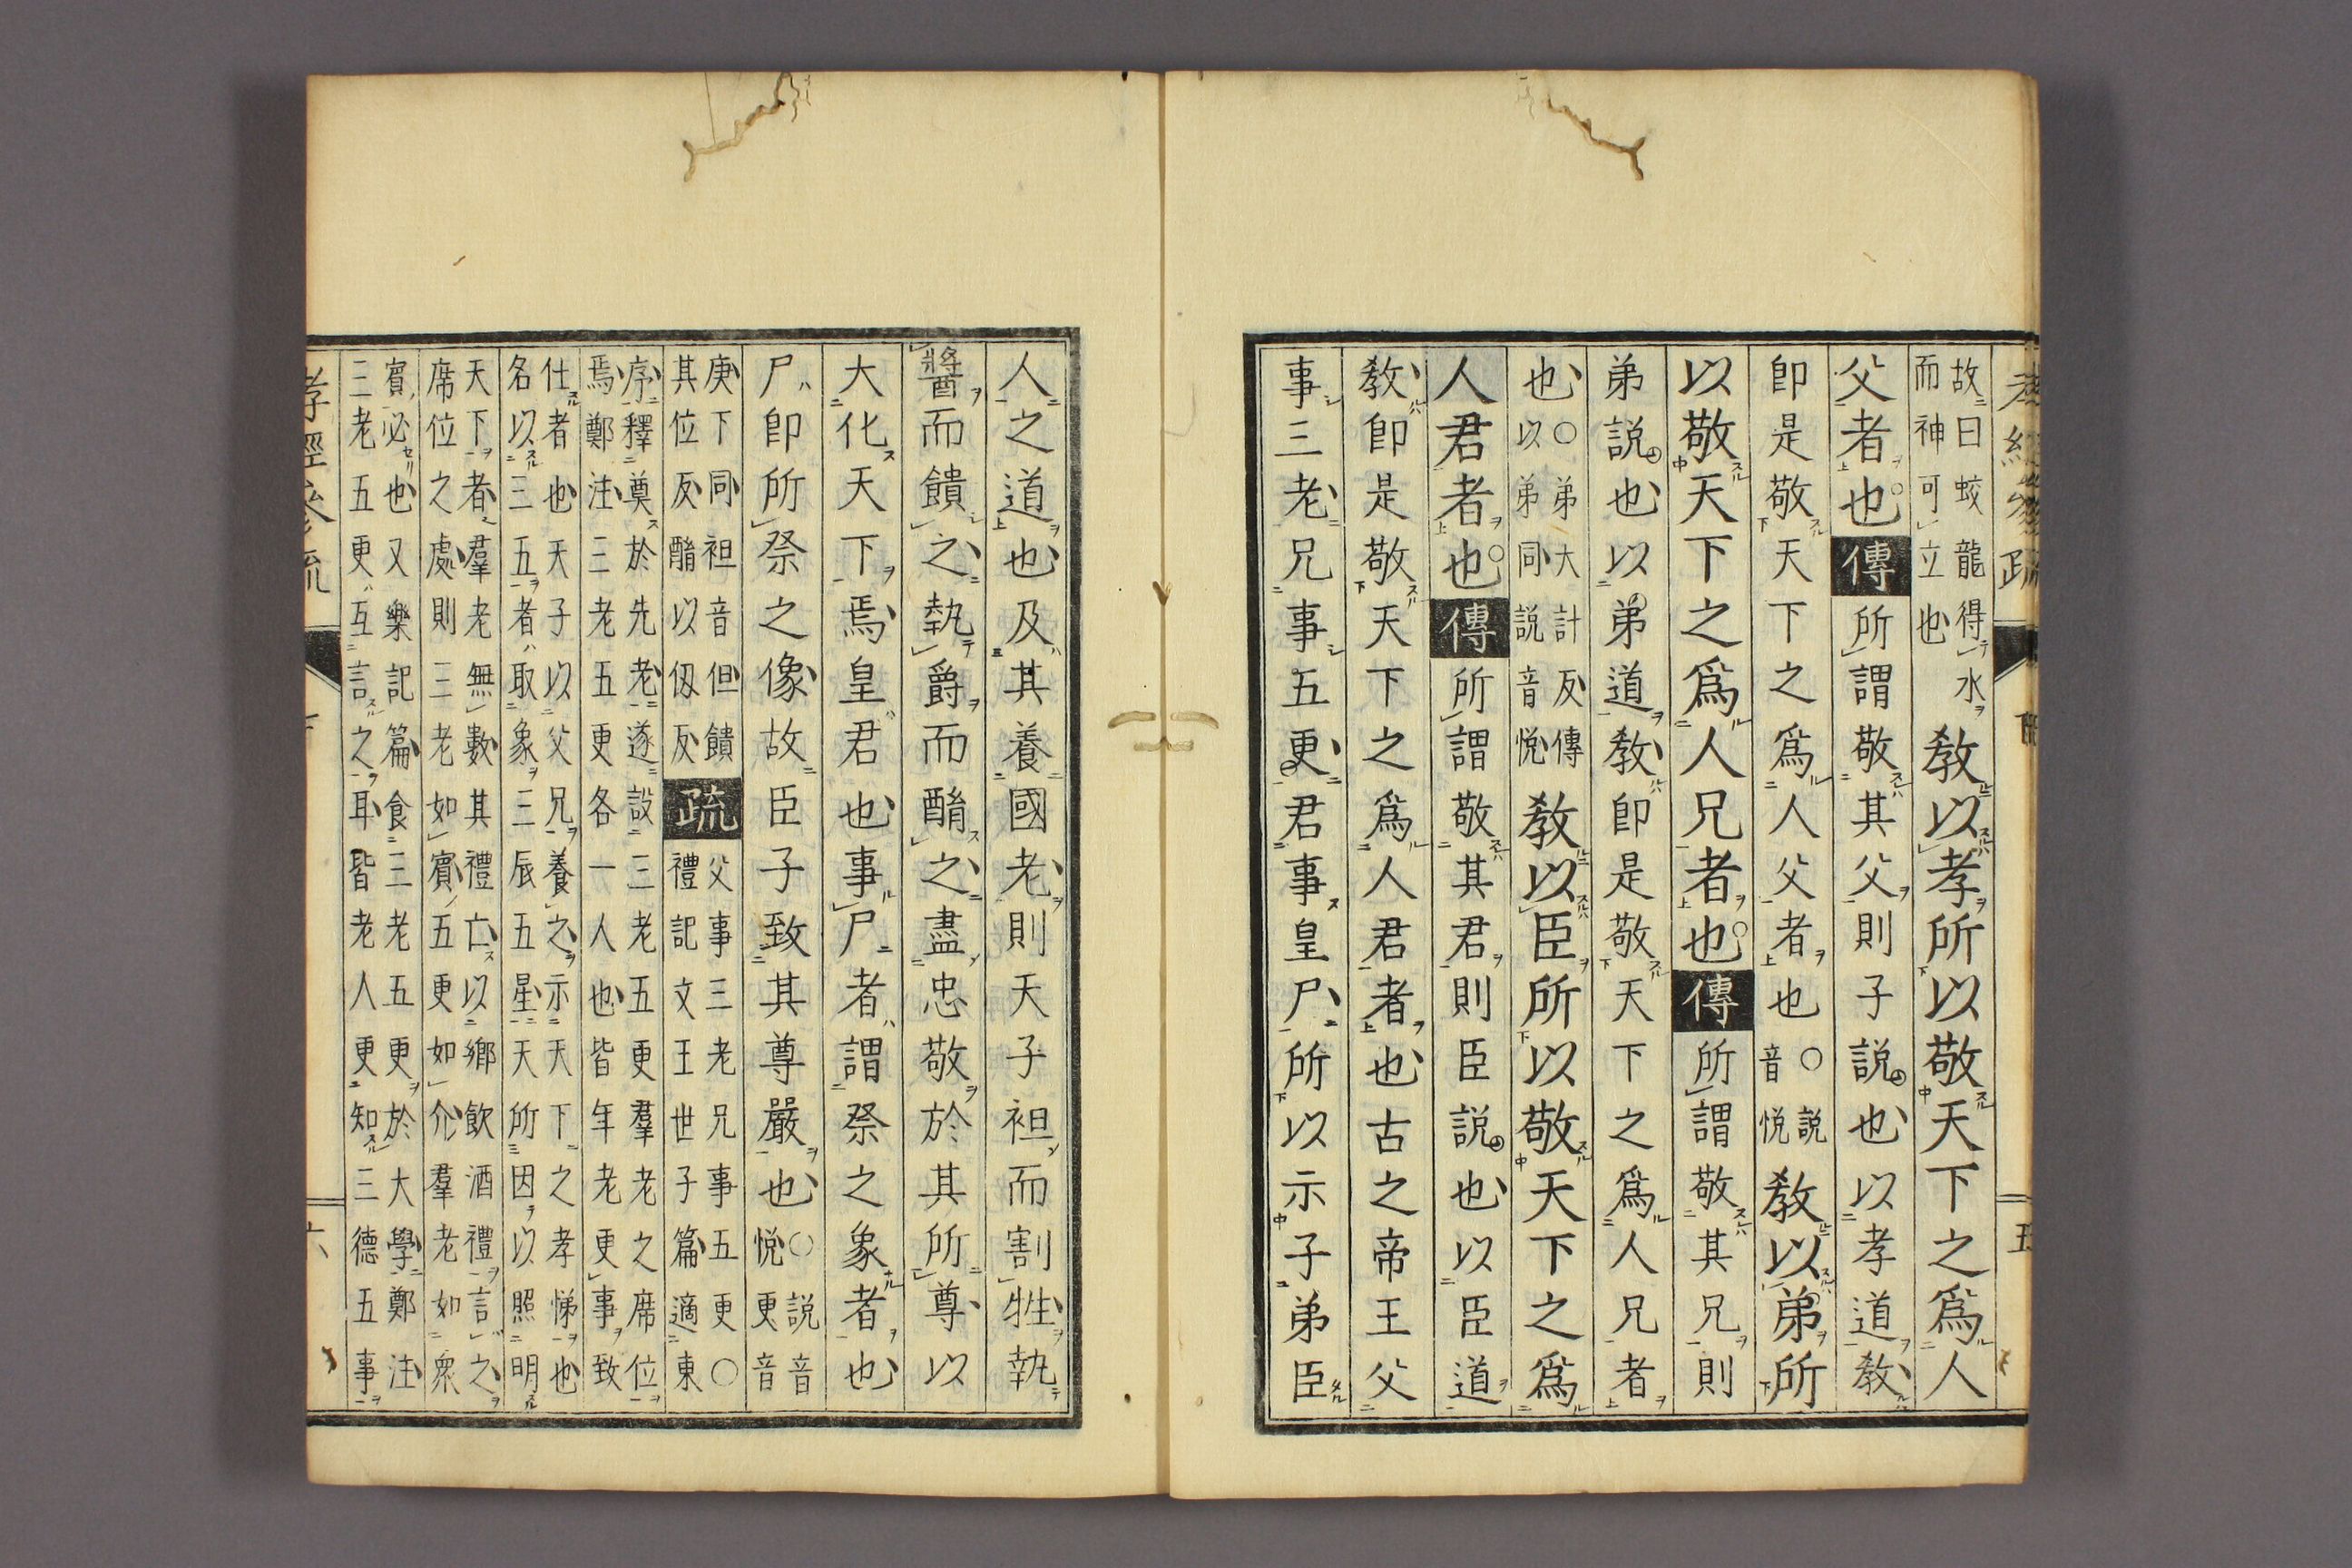 故曰蛟龍得水
而神可立也
教以孝所以敬天下之爲人
父者也傳所謂敬其父則子説也以孝道教
卽是敬天下之爲人父者也
○説
音悦
教以弟所
以敬天下之爲人兄者也傳所謂敬其兄則
弟説也以弟道教卽是敬天下之爲人兄者
也
○弟大計反傳
以弟同説音悦
教以臣所以敬天下之爲
人君者也傳所謂敬其君則臣説也以臣道
教卽是敬天下之爲人君者也古之帝王父
事三老兄事五更君事皇尸所以示子弟臣
人之道也及其養國老則天子袒而割牲執
醬而饋之執爵而酳之盡忠敬於其所尊以
大化天下焉皇君也事尸者謂祭之象者也
尸卽所祭之像故臣子致其尊嚴也
○説音
悦更音
庚下同袒音但饋
其位反酳以刃反
疏
父事三老兄事五更○
禮記文王世子篇適東
序釋奠於先老遂設三老五更羣老之席位
焉鄭注三老五更各一人也皆年老更事致
仕者也天子以父兄養之示天下之孝悌也
名以三五者取象三辰五星天所因以照明
天下者羣老無數其禮亡以鄉飲酒禮言之
席位之處則三老如賓五更如介羣老如衆
賓必也又樂記篇食三老五更於大學鄭注
三老五更互言之耳皆老人更知三德五事